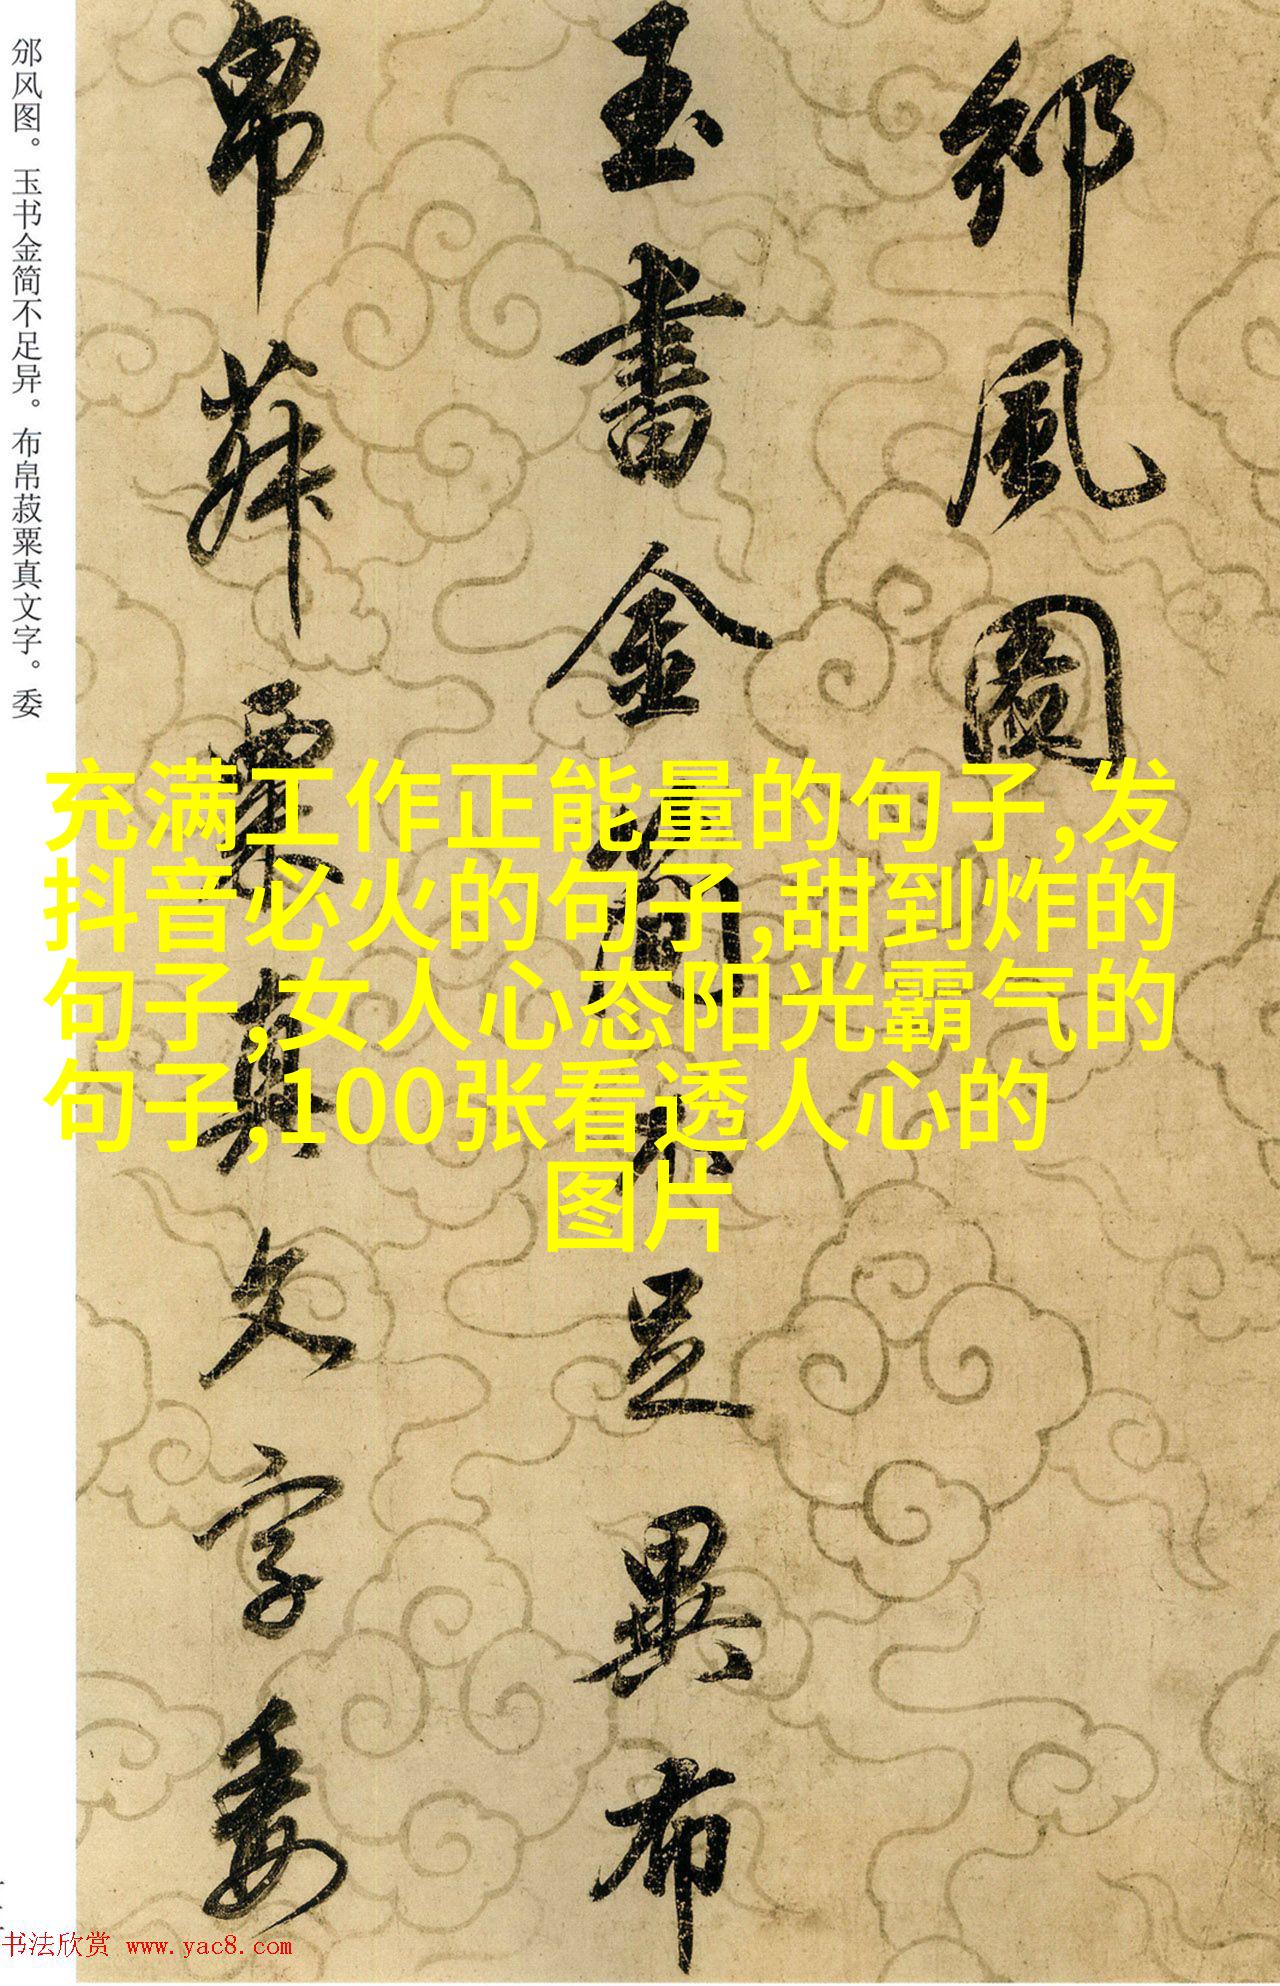 邠風圖
玉書金簡不足異布
帛菽粟真文字委
邠风图。玉书金简不足异。布帛菽粟真文字。委
充满工作正能量的句子,发
抖音必火的句子,甜到炸的
句子,女人心态阳光霸气的
句子,100张看透人心的
图片
书法欣赏 www.yac8.com